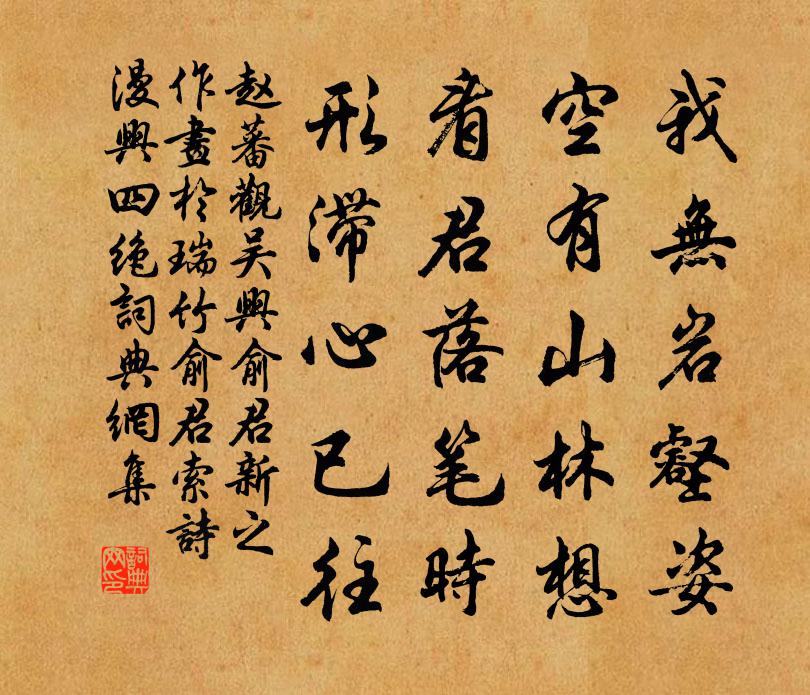 我無岩壑姿
空有山林想
看君落笔時
形滞心已往
赵蕃觀吴興俞君新之
作畫於瑞竹俞君索詩
漫興四绝詞典網集
詞典网印